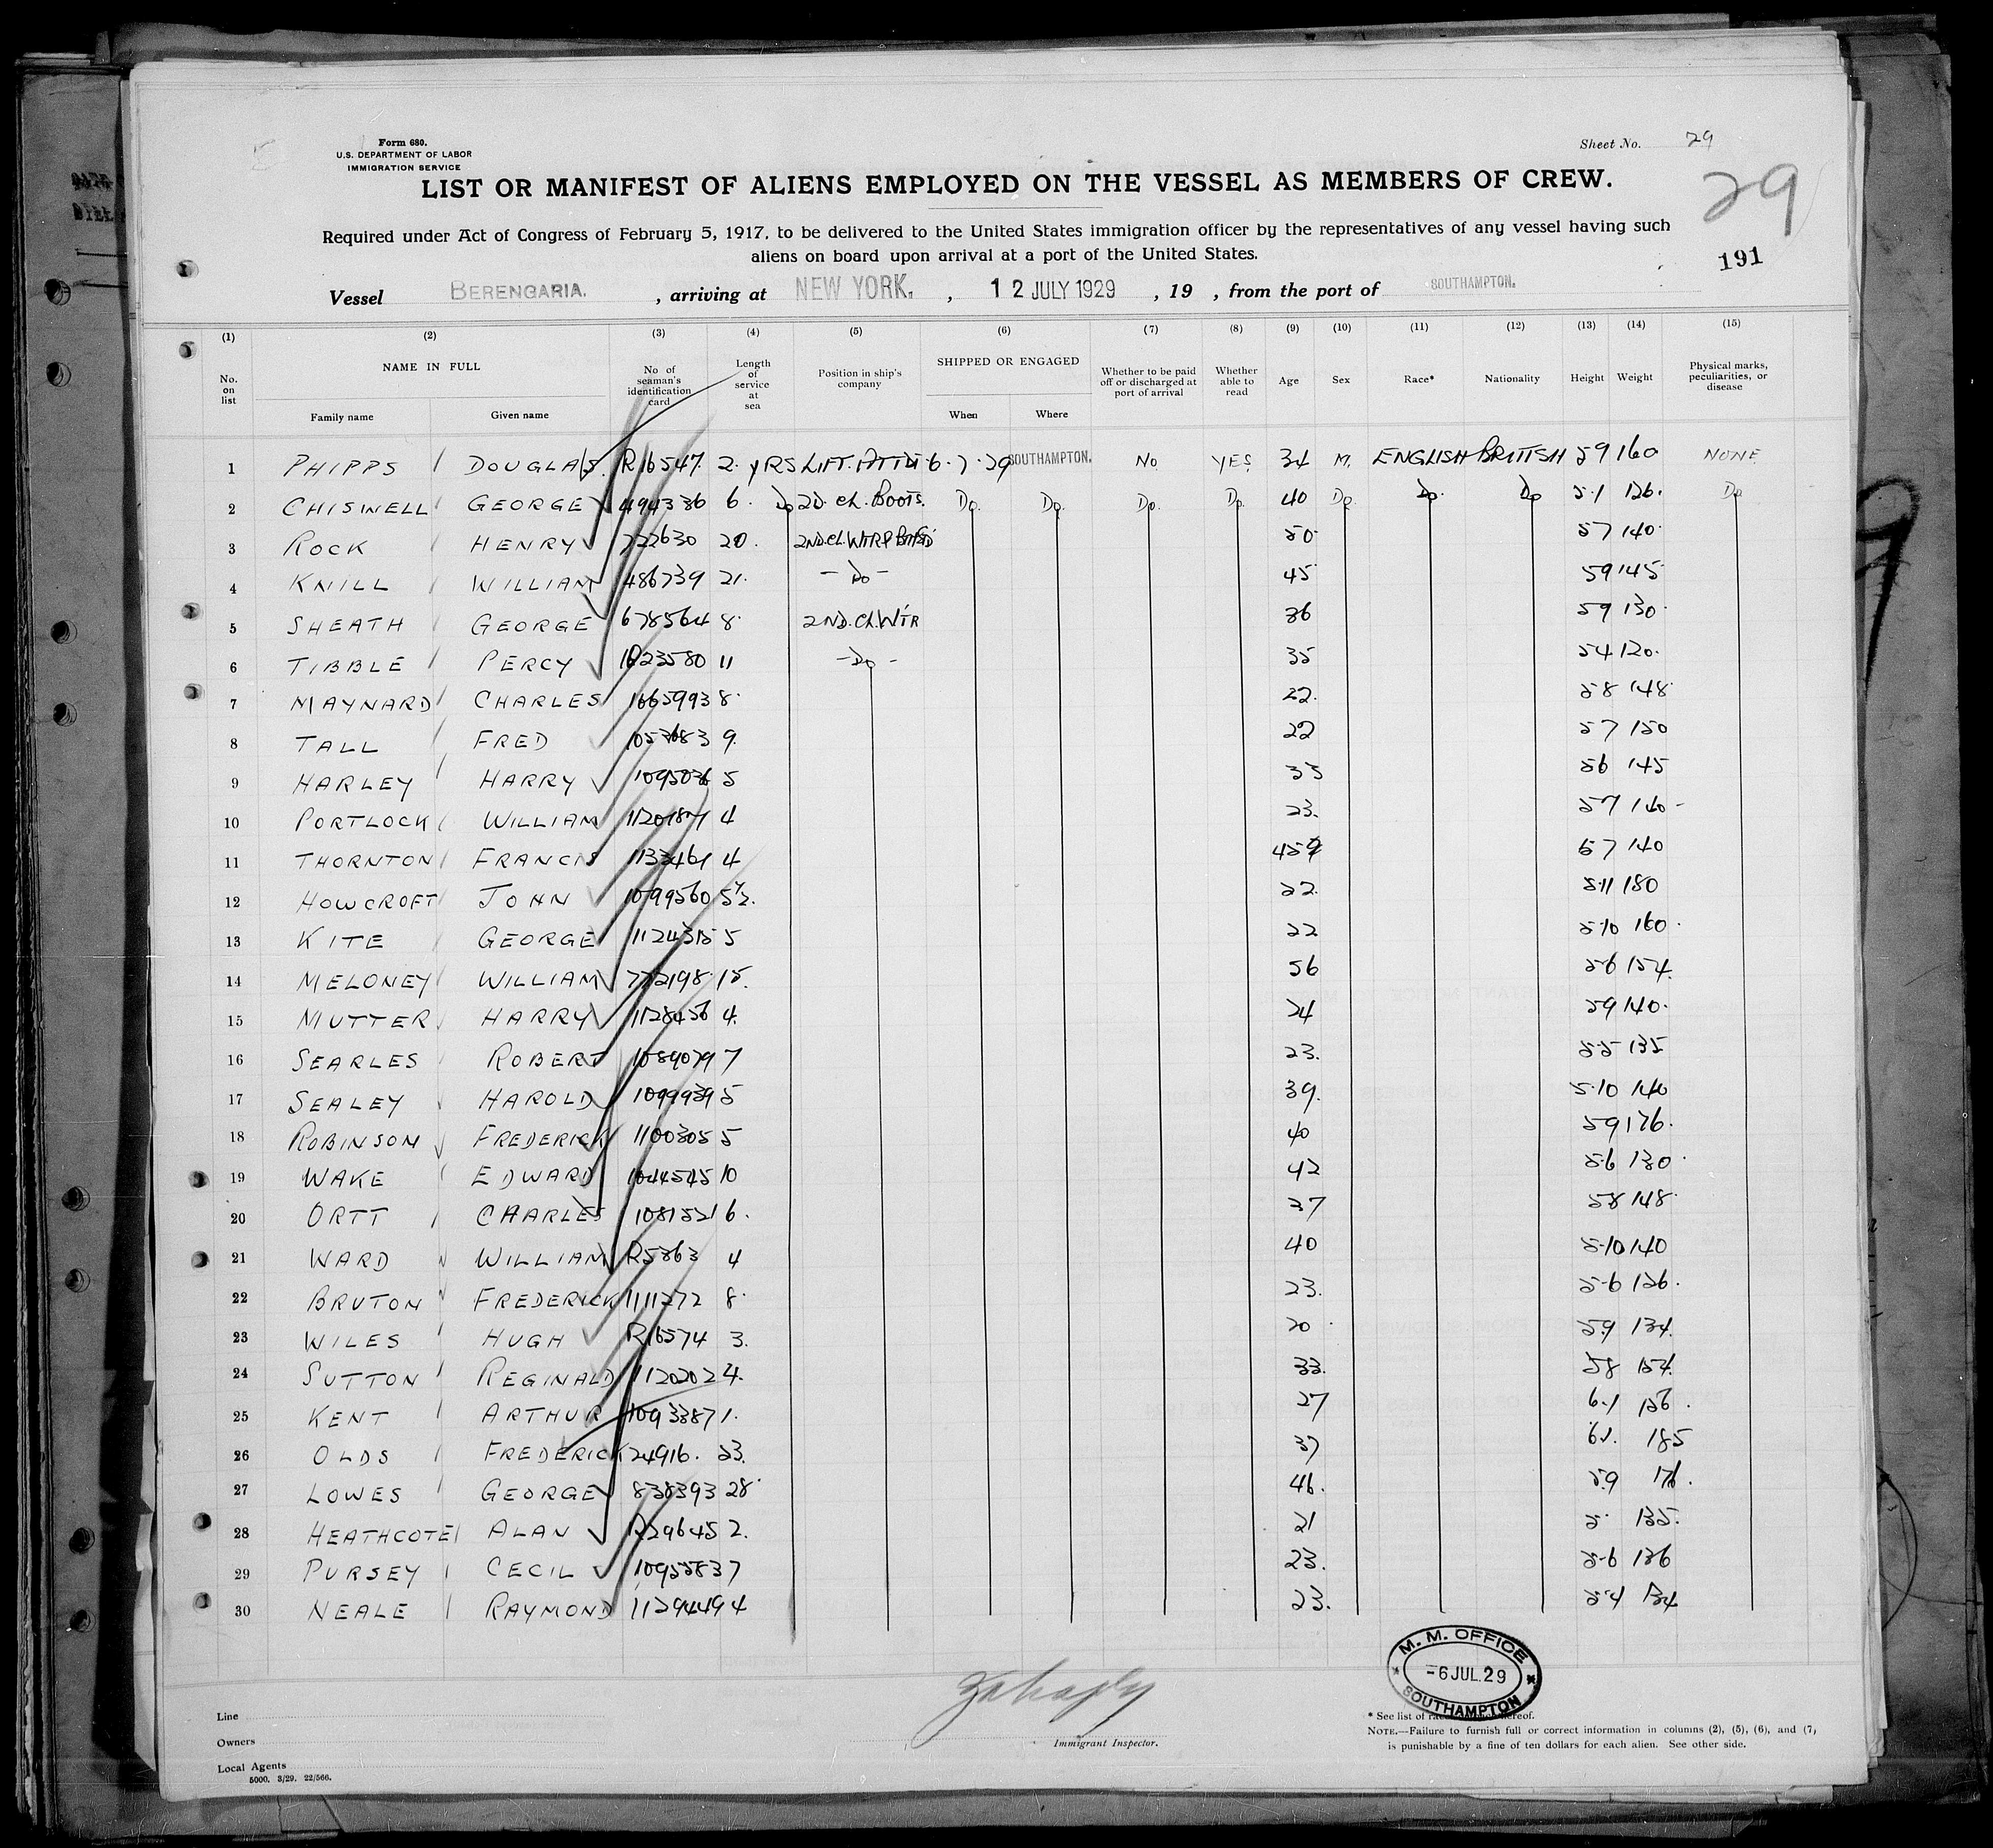 Form 680.
U.S. DEPARTMENT OF LABOR
IMMIGRATION SERVICE
Sheet No. 29
LIST OR MANIFEST OF ALIENS EMPLOYED ON THE VESSEL AS MEMBERS OF CREW.
29
Required under Act of Congress of February 5, 1917, to be delivered to the United States immigration officer by the representatives of any vessel having such
aliens on board upon arrival at a port of the United States.
191
Vessel BERENGARIA. , arriving at NEW YORK. , 12 JULY 1929 , 19 , from the port of SOUTHAMPTON.
(1) (2) (3) (4) (5) (6) (7) (8) (9) (10) (11) (12) (13) (14) (15)
No. on list NAME IN FULL No of seaman's identification card Length of service at sea Position in ship's company SHIPPED OR ENGAGED Whether to be paid off or discharged at port of arrival Whether able to read Age Sex Race* Nationality Height Weight Physical marks, peculiarities, or disease
Family name Given name When Where
1 PHIPPS DOUGLAS. R16547 2. YRS LIFT. ATTDT 6.7.29 SOUTHAMPTON. No YES 34 M. ENGLISH BRITISH 59 160 NONE
2 CHISWELL GEORGE 494386 6. Do 2D. CL. BOOTS. Do. Do. Do. Do. 40 Do. Do. Do 5.1 126. Do
3 ROCK HENRY 722630 20. 2ND.CL.WTR 50 57 140
4 KNILL WILLIAM 486739 21. - Do - 45 59 145
5 SHEATH GEORGE 678564 8. 2ND.CL.WTR 36 59 130.
6 TIBBLE PERCY 1023580 11 - Do - 35 54 120.
7 MAYNARD CHARLES 1665993 8. 22. 58 148.
8 TALL FRED 9. 22 57 150
9 HARLEY HARRY 1095036 5 33 56 145
10 PORTLOCK WILLIAM 4 23. 57 140 -
11 THORNTON FRANCIS 1133461 4 57 140
12 HOWCROFT JOHN 1099560 5½. 22. 5.11 180
13 KITE GEORGE 1124315 5 22 5.10 160.
14 MELONEY WILLIAM 772198 15. 56 5.6 154.
15 MUTTER HARRY 1128456 4. 24 59 140.
16 SEARLES ROBERT 1089079 7 23. 5.5 135
17 SEALEY HAROLD 1099939 5 39. 5.10 140
18 ROBINSON FREDERICK 1100305 5 40 59 176.
19 WAKE EDWARD 1044545 10 42 5.6 130.
20 ORTT CHARLES 1081521 6. 37 58 148
21 WARD WILLIAM R5863 4 40 5.10 140
22 BRUTON FREDERICK 1111272 8. 23. 5.6 126.
23 WILES HUGH R16574 3. 20 5.9 134.
24 SUTTON REGINALD 1120202 4. 33. 58 154.
25 KENT ARTHUR 1093387 1. 27 6.1 156.
26 OLDS FREDERICK 24916. 23. 37 6.1. 185
27 LOWES GEORGE 838393 28. 46. 5.9 176.
28 HEATHCOTE ALAN R29645 2. 21 5. 135.
29 PURSEY CECIL 1095583 7 23. 5.6 136
30 NEALE RAYMOND 1129449 4 23. 5.4 134
M. M. OFFICE
-6 JUL.29
SOUTHAMPTON
Line
Owners
Local Agents
5000. 3/29. 22/566.
Immigrant Inspector.
* See list of hereof.
NOTE.—Failure to furnish full or correct information in columns (2), (5), (6), and (7,
is punishable by a fine of ten dollars for each alien. See other side.